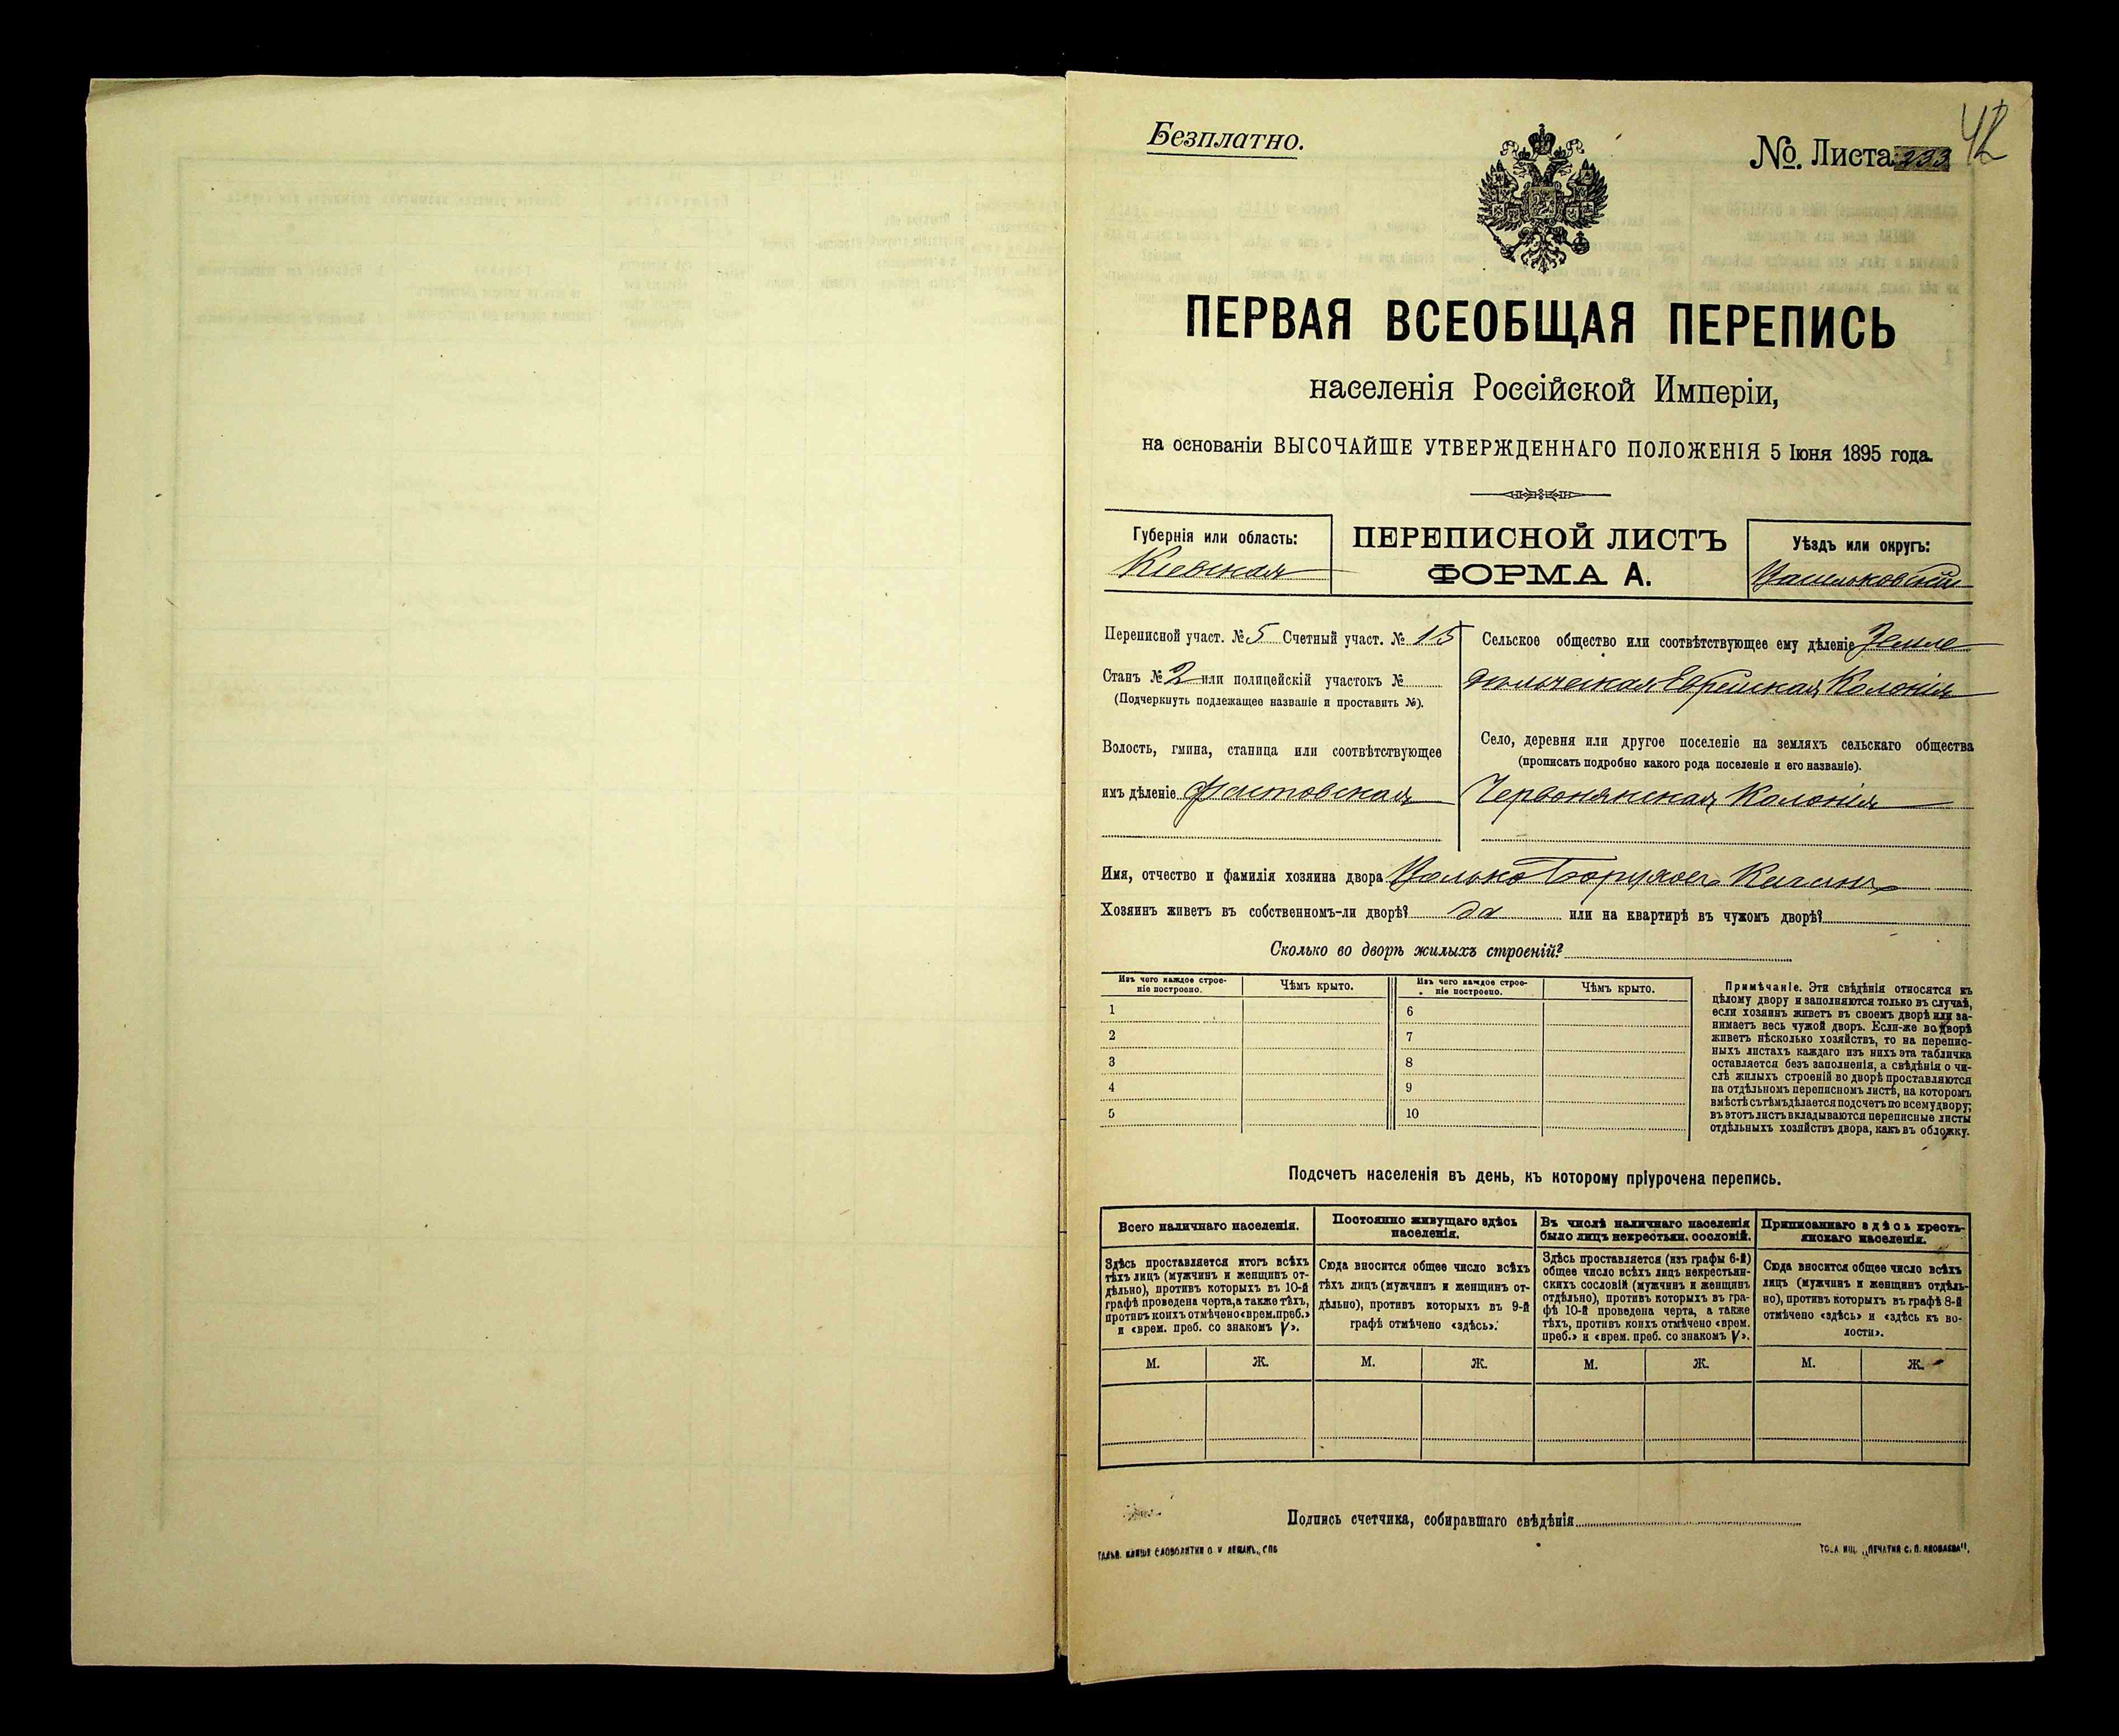 Безплатно.
№. Листа 233 42
ПЕРВАЯ ВСЕОБЩАЯ ПЕРЕПИСЬ
населенія Россійской Имперіи,
на основаніи ВЫСОЧАЙШЕ УТВЕРЖДЕННАГО ПОЛОЖЕНІЯ 5 Іюня 1895 года.
Губернія или область:
Кіевская
ПЕРЕПИСНОЙ ЛИСТЪ
ФОРМА А.
Уѣздъ или округъ:
Васильковскій
Переписной участ. № 5 Счетный участ. № 15
Станъ № 2 или полицейскій участокъ №
(Подчеркнуть подлежащее названіе и проставить №).
Волость, гмина, станица или соотвѣтствующее
имъ дѣленіе Фастовская
Сельское общество или соотвѣтствующее ему дѣленіе Земле
дѣльческая Еврейская Колонія
Село, деревня или другое поселеніе на земляхъ сельскаго общества
(прописать подробно какого рода поселеніе и его названіе).
Червонянская Колонія
Имя, отчество и фамилія хозяина двора Волько Борухов Каганъ
Хозяинъ живетъ въ собственномъ-ли дворѣ? да или на квартирѣ въ чужомъ дворѣ?
Сколько во дворѣ жилыхъ строеній?
Изъ чего каждое строе-
ніе построено.
Чѣмъ крыто.
Изъ чего каждое строе-
ніе построено.
Чѣмъ крыто.
1 6
2 7
3 8
4 9
5 10
Примѣчаніе. Эти свѣдѣнія относятся къ
цѣлому двору и заполняются только въ случаѣ,
если хозяинъ живетъ въ своемъ дворѣ или за-
нимаетъ весь чужой дворъ. Если-же во дворѣ
живетъ нѣсколько хозяйствъ, то на перепис-
ныхъ листахъ каждаго изъ нихъ эта табличка
оставляется безъ заполненія, а свѣдѣнія о чи-
слѣ жилыхъ строеній во дворѣ проставляются
на отдѣльномъ переписномъ листѣ, на которомъ
вмѣстѣ съ тѣмъ дѣлается подсчетъ по всему двору;
въ этотъ листъ вкладываются переписные листы
отдѣльныхъ хозяйствъ двора, какъ въ обложку.
Подсчетъ населенія въ день, къ которому пріурочена перепись.
Всего наличнаго населенія.
Здѣсь проставляется итогъ всѣхъ
тѣхъ лицъ (мужчинъ и женщинъ от-
дѣльно), противъ которыхъ въ 10-й
графѣ проведена черта, а также тѣхъ,
противъ коихъ отмѣчено «врем. преб.»
и «врем. преб. со знакомъ V».
Постоянно живущаго здѣсь
населенія.
Сюда вносится общее число всѣхъ
тѣхъ лицъ (мужчинъ и женщинъ от-
дѣльно), противъ которыхъ въ 9-й
графѣ отмѣчено «здѣсь».
Въ числѣ наличнаго населенія
было лицъ некрестьян. сословій.
Здѣсь проставляется (изъ графы 6-й)
общее число всѣхъ лицъ некрестьян-
скихъ сословій (мужчинъ и женщинъ
отдѣльно), противъ которыхъ въ гра-
фѣ 10-й проведена черта, а также
тѣхъ, противъ коихъ отмѣчено «врем.
преб.» и «врем. преб. со знакомъ V».
Приписаннаго здѣсь кресть-
янскаго населенія.
Сюда вносится общее число всѣхъ
лицъ (мужчинъ и женщинъ отдѣль-
но), противъ которыхъ въ графѣ 8-й
отмѣчено «здѣсь» и «здѣсь къ во-
лости».
М. Ж. М. Ж. М. Ж. М. Ж.
Подпись счетчика, собиравшаго свѣдѣнія